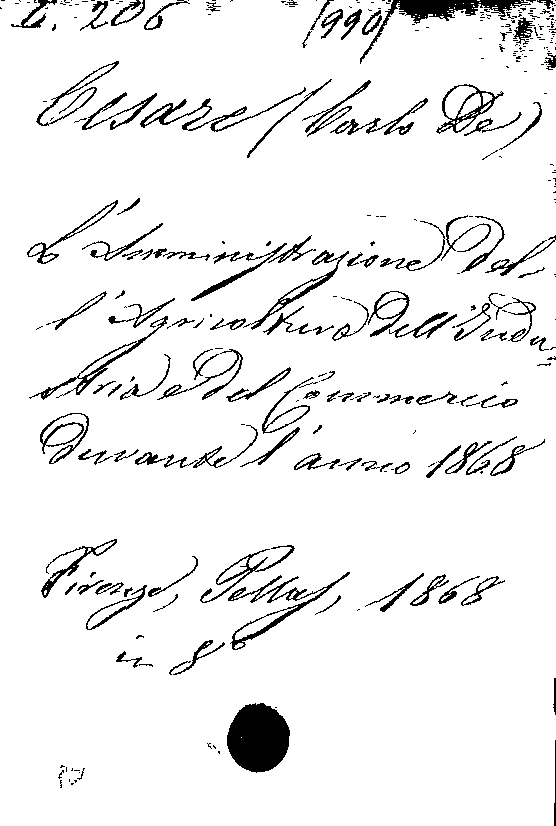 L. 206 (990)
Cesare (Carlo De)
L'Amministrazione del-
l'Agricoltura dell'Indu-
stria e del Commercio
durante l'anno 1868
Firenze, Pellas, 1868
in 8º